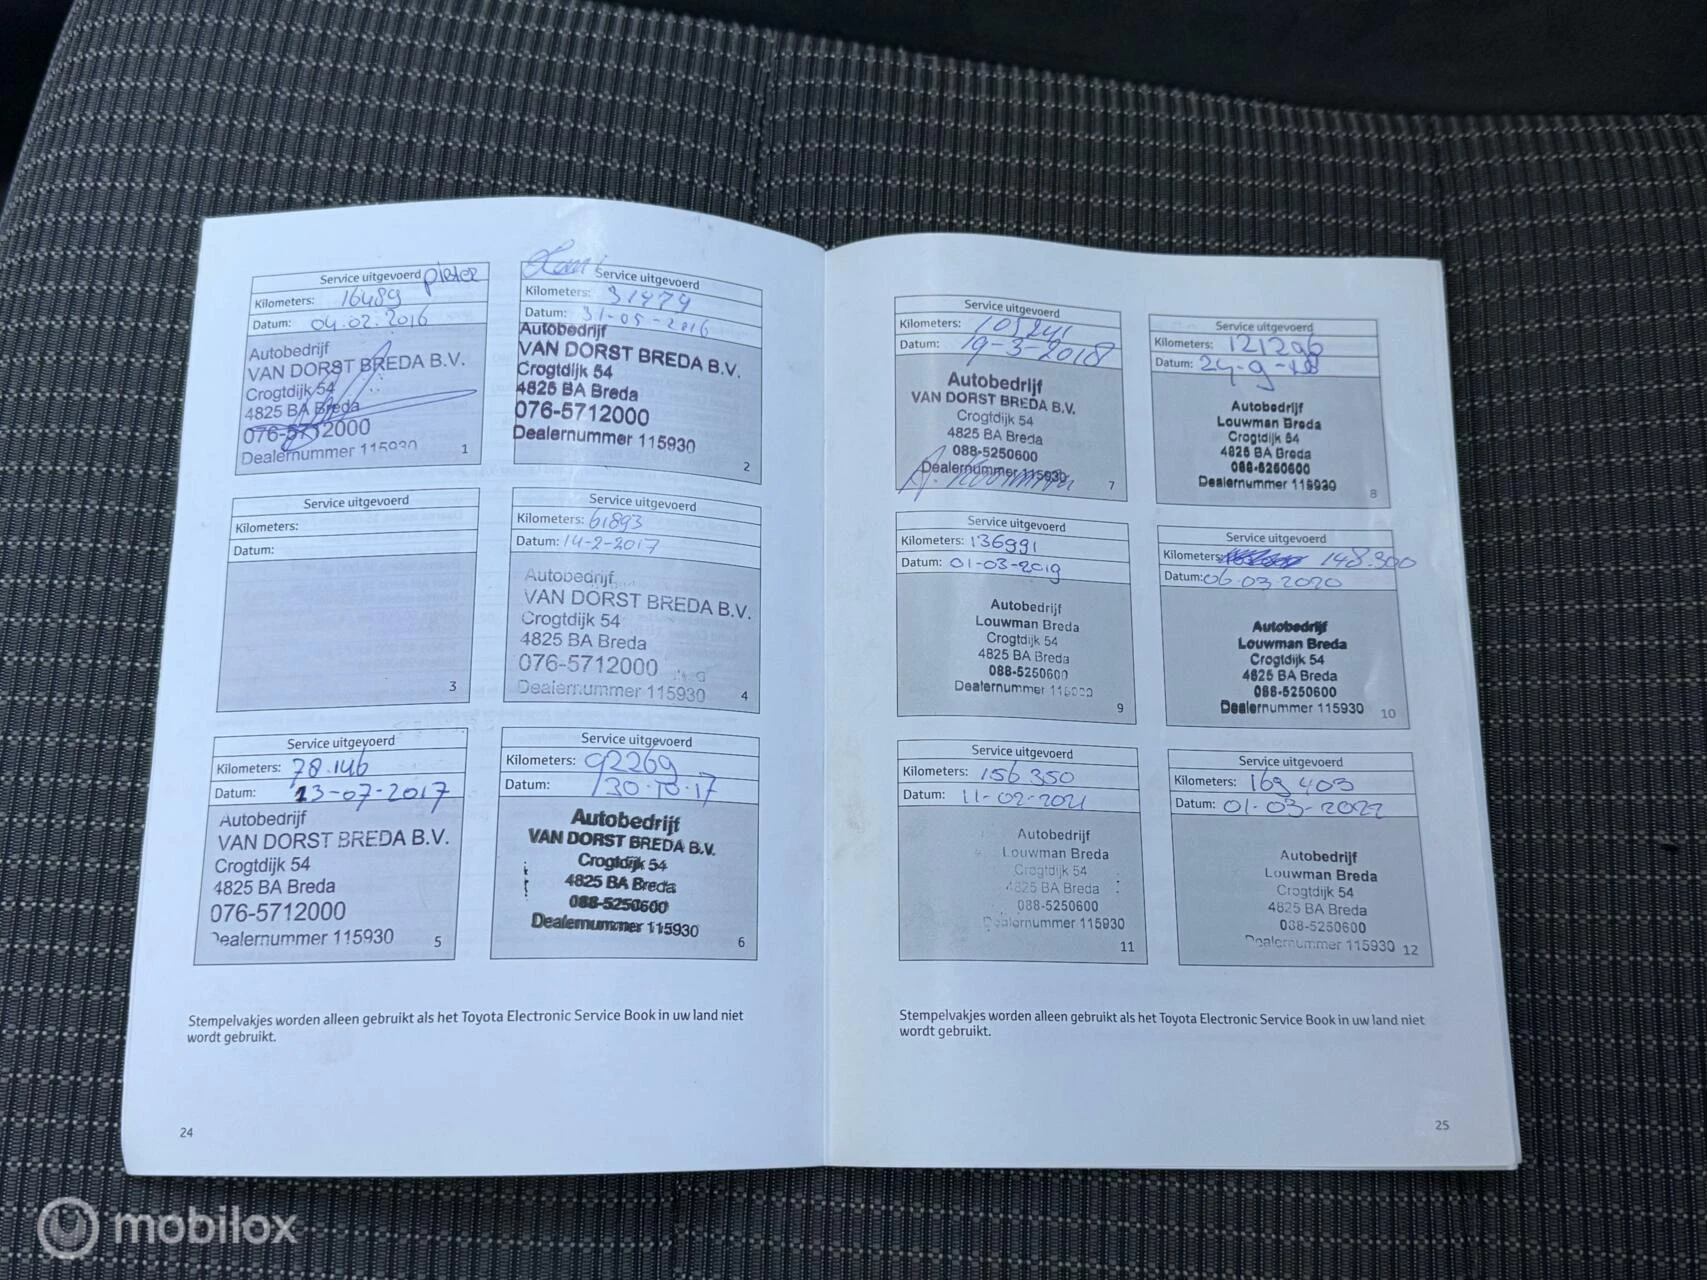 Service uitgevoerd pieter
Kilometers: 16489
Datum: 04.02.2016
Autobedrijf
VAN DORST BREDA B.V.
Crogtdijk 54
4825 BA Breda
076-5712000
Dealernummer 115930
1
Service uitgevoerd
Kilometers: 31479
Datum: 31-05-2016
Autobedrijf
VAN DORST BREDA B.V.
Crogtdijk 54
4825 BA Breda
076-5712000
Dealernummer 115930
2
Service uitgevoerd
Kilometers:
Datum:
3
Service uitgevoerd
Kilometers: 61893
Datum: 14-2-2017
Autobedrijf
VAN DORST BREDA B.V.
Crogtdijk 54
4825 BA Breda
076-5712000
Dealernummer 115930
4
Service uitgevoerd
Kilometers: 78.146
Datum: 13-07-2017
Autobedrijf
VAN DORST BREDA B.V.
Crogtdijk 54
4825 BA Breda
076-5712000
Dealernummer 115930
5
Service uitgevoerd
Kilometers: 92269
Datum: 30-10-17
Autobedrijf
VAN DORST BREDA B.V.
Crogtdijk 54
4825 BA Breda
088-5250600
Dealernummer 115930
6
Stempelvakjes worden alleen gebruikt als het Toyota Electronic Service Book in uw land niet
wordt gebruikt.
24
Service uitgevoerd
Kilometers: 105241
Datum: 19-3-2018
Autobedrijf
VAN DORST BREDA B.V.
Crogtdijk 54
4825 BA Breda
088-5250600
Dealernummer 115930
7
Service uitgevoerd
Kilometers: 121296
Datum: 24-9-18
Autobedrijf
Louwman Breda
Crogtdijk 54
4825 BA Breda
088-5250600
Dealernummer 115930
8
Service uitgevoerd
Kilometers: 136991
Datum: 01-03-2019
Autobedrijf
Louwman Breda
Crogtdijk 54
4825 BA Breda
088-5250600
Dealernummer 115930
9
Service uitgevoerd
Kilometers: 148.300
Datum: 06-03-2020
Autobedrijf
Louwman Breda
Crogtdijk 54
4825 BA Breda
088-5250600
Dealernummer 115930
10
Service uitgevoerd
Kilometers: 156 350
Datum: 11-02-2021
Autobedrijf
Louwman Breda
Crogtdijk 54
4825 BA Breda
088-5250600
Dealernummer 115930
11
Service uitgevoerd
Kilometers: 169 403
Datum: 01-03-2022
Autobedrijf
Louwman Breda
Crogtdijk 54
4825 BA Breda
088-5250600
Dealernummer 115930
12
Stempelvakjes worden alleen gebruikt als het Toyota Electronic Service Book in uw land niet
wordt gebruikt.
25
mobilox